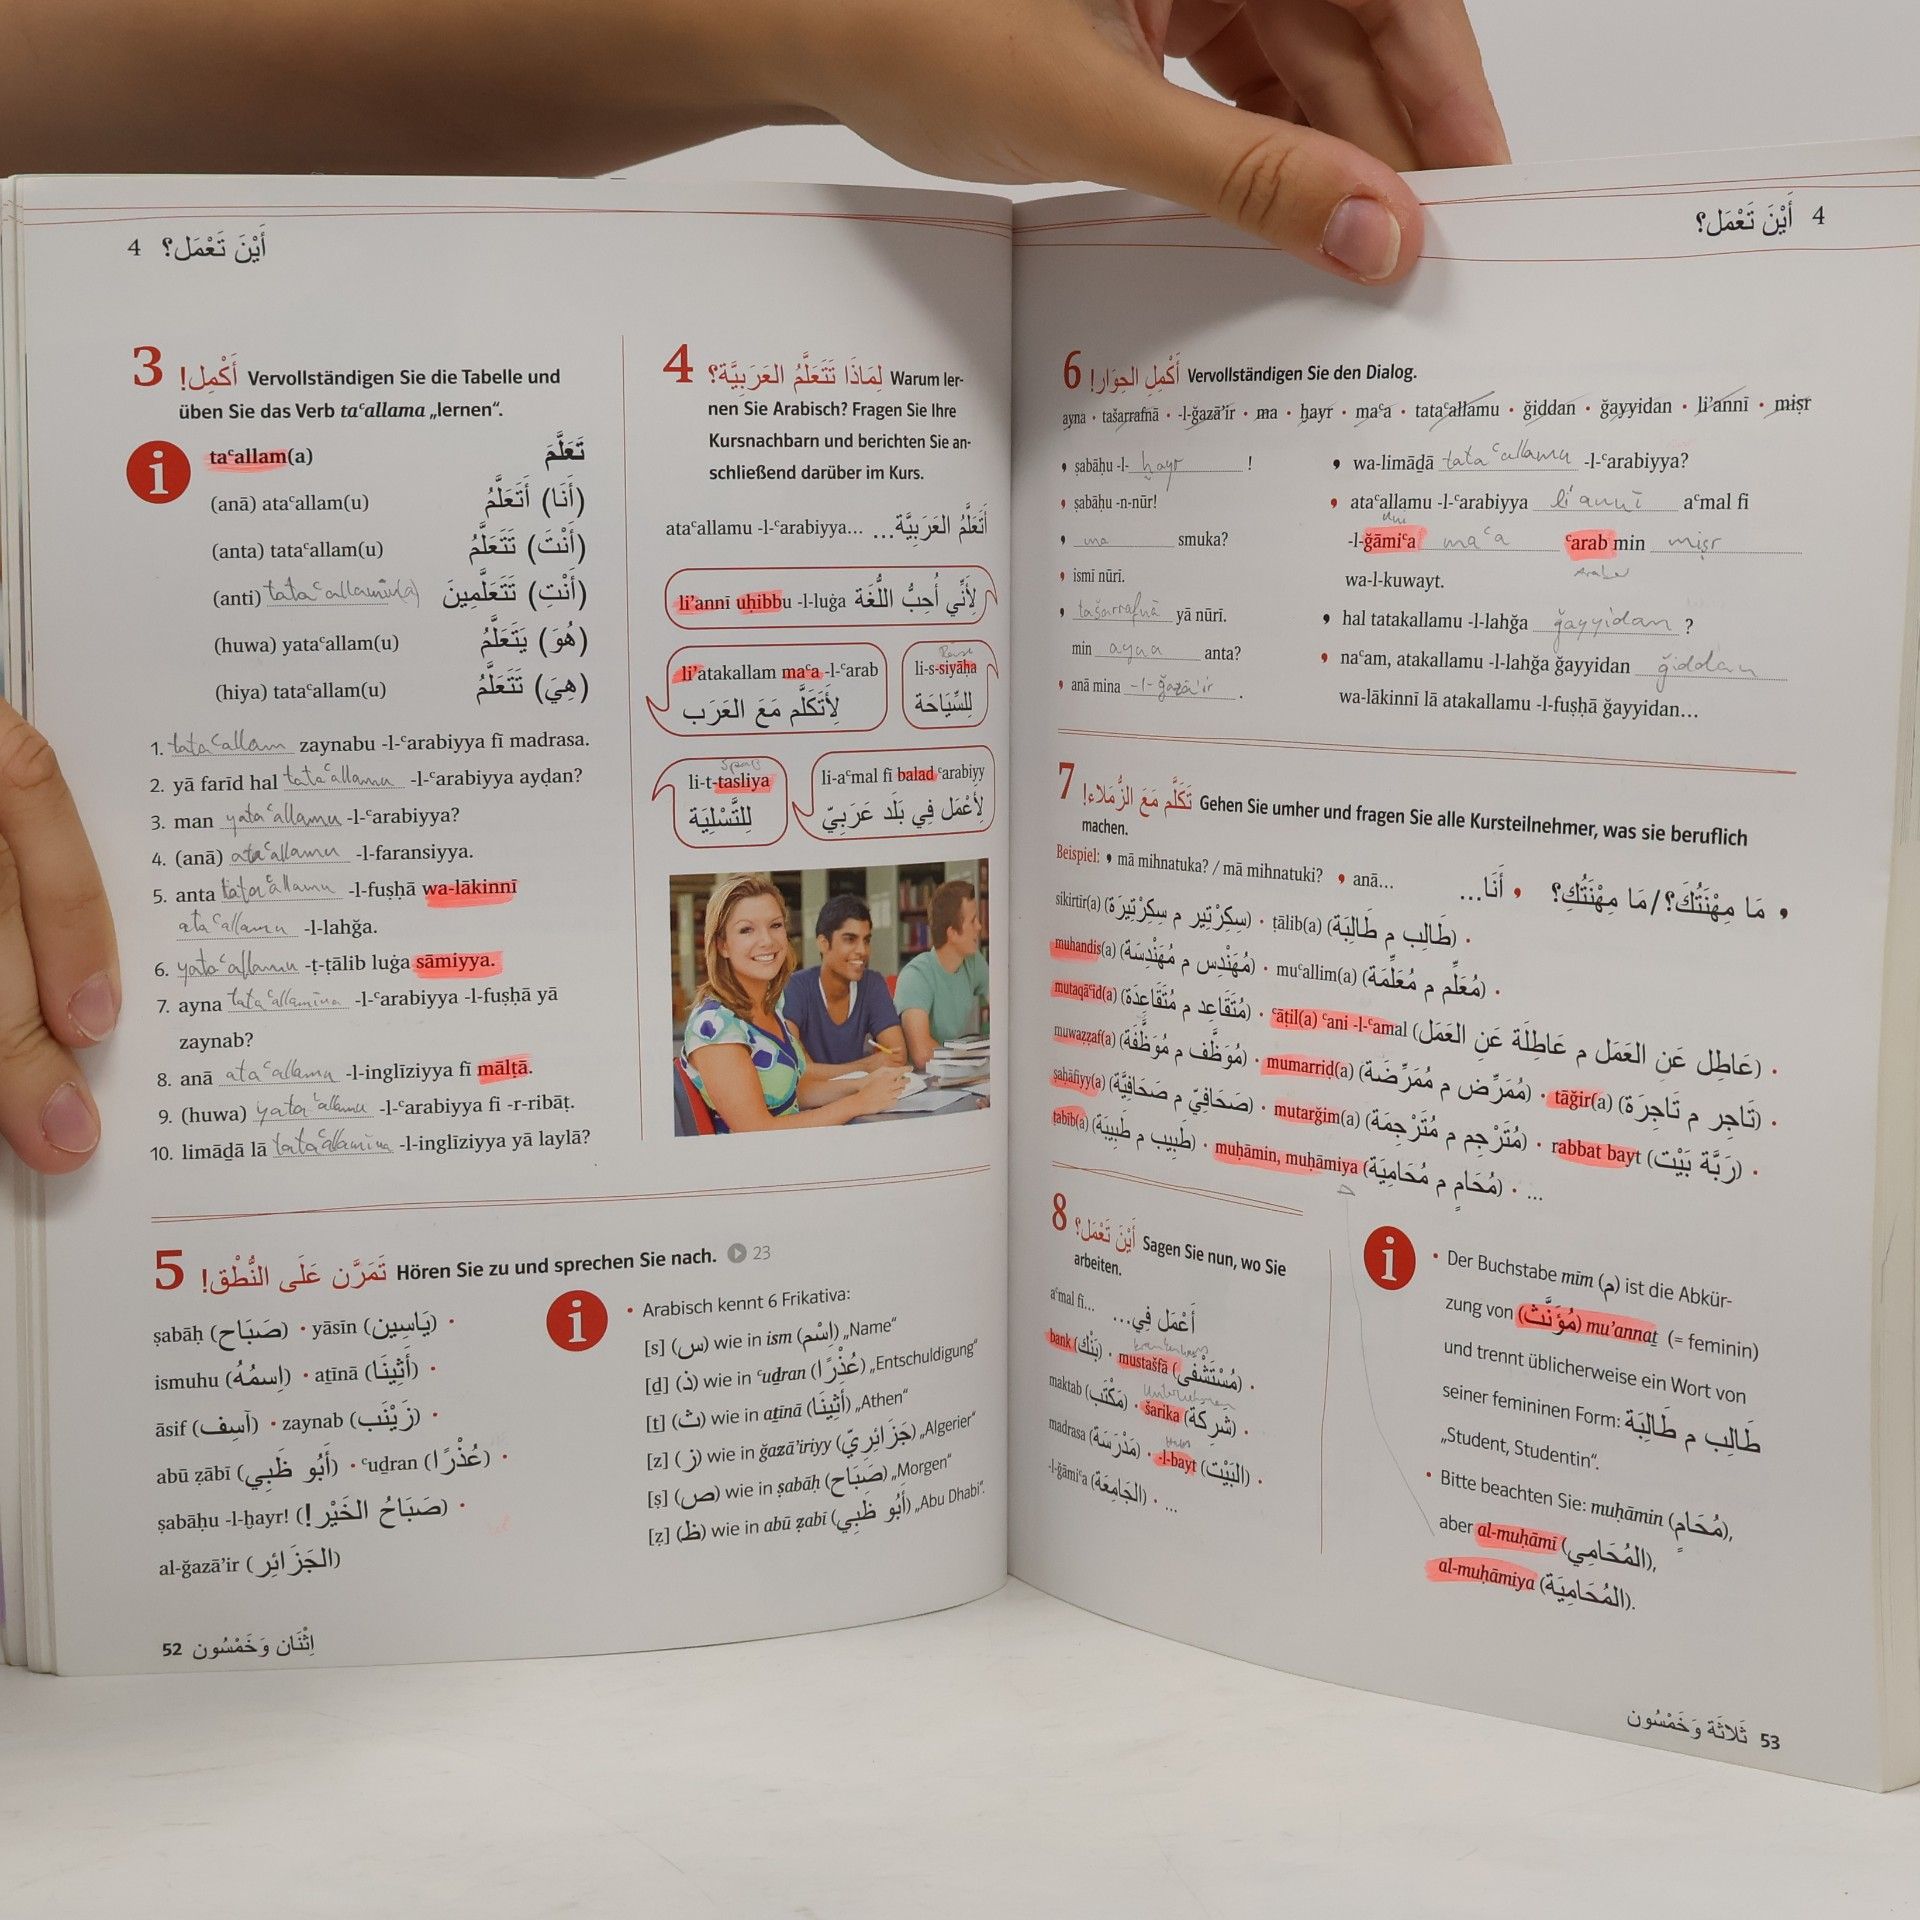 4 أَيْنَ تَعْمَل؟
3 أَكْمِل! Vervollständigen Sie die Tabelle und
üben Sie das Verb taʿallama „lernen“.
i taʿallam(a) تَعَلَّمَ
(anā) ataʿallam(u) (أَنَا) أَتَعَلَّمُ
(anta) tataʿallam(u) (أَنْتَ) تَتَعَلَّمُ
(anti) tataʿallamīn(a) (أَنْتِ) تَتَعَلَّمِينَ
(huwa) yataʿallam(u) (هُوَ) يَتَعَلَّمُ
(hiya) tataʿallam(u) (هِيَ) تَتَعَلَّمُ
1. tataʿallam zaynabu -l-ʿarabiyya fī madrasa.
2. yā farīd hal tataʿallamu -l-ʿarabiyya ayḍan?
3. man yataʿallamu -l-ʿarabiyya?
4. (anā) ataʿallamu -l-faransiyya.
5. anta tataʿallamu -l-fuṣḥā wa-lākinnī
ataʿallamu -l-lahǧa.
6. yataʿallamu -ṭ-ṭālib luġa sāmiyya.
7. ayna tataʿallamīna -l-ʿarabiyya -l-fuṣḥā yā
zaynab?
8. anā ataʿallamu -l-inglīziyya fī mālṭā.
9. (huwa) yataʿallamu -l-ʿarabiyya fi -r-ribāṭ.
10. limāḏā lā tataʿallamīna -l-inglīziyya yā laylā?
4 لِمَاذَا تَتَعَلَّمُ العَرَبِيَّة؟ Warum ler-
nen Sie Arabisch? Fragen Sie Ihre
Kursnachbarn und berichten Sie an-
schließend darüber im Kurs.
ataʿallamu -l-ʿarabiyya… أَتَعَلَّمُ العَرَبِيَّة…
li’annī uḥibbu -l-luġa لِأَنِّي أُحِبُّ اللُّغَة
li’atakallam maʿa -l-ʿarab
لِأَتَكَلَّم مَعَ العَرَب
Reise
li-s-siyāḥa
لِلسِّيَاحَة
Spaß
li-t-tasliya
لِلتَّسْلِيَة
li-aʿmal fī balad ʿarabiyy
لِأَعْمَل فِي بَلَد عَرَبِيّ
5 تَمَرَّن عَلَى النُّطْق! Hören Sie zu und sprechen Sie nach. 23
ṣabāḥ (صَبَاح) • yāsīn (يَاسِين) •
ismuhu (اِسمُهُ) • aṯīnā (أَثِينَا) •
āsif (آسِف) • zaynab (زَيْنَب) •
abū ẓābī (أَبُو ظَبِي) • ʿuḏran (عُذْرًا) •
ṣabāḥu -l-ḫayr! (صَبَاحُ الخَيْر!) •
al-ǧazā’ir (الجَزَائِر)
i
• Arabisch kennt 6 Frikativa:
[s] (س) wie in ism (اِسْم) „Name“
[ḏ] (ذ) wie in ʿuḏran (عُذْرًا) „Entschuldigung“
[ṯ] (ث) wie in aṯīnā (أَثِينَا) „Athen“
[z] (ز) wie in ǧazā’iriyy (جَزَائِرِيّ) „Algerier“
[ṣ] (ص) wie in ṣabāḥ (صَبَاح) „Morgen“
[ẓ] (ظ) wie in abū ẓabī (أَبُو ظَبِي) „Abu Dhabi“.
52 اِثْنَان وَخَمْسُون
أَيْنَ تَعْمَل؟ 4
6 أَكْمِلِ الحِوَار! Vervollständigen Sie den Dialog.
ayna • tašarrafnā • -l-ǧazā’ir • ma • ḫayr • maʿa • tataʿallamu • ǧiddan • ǧayyidan • li’annī • miṣr
ṣabāḥu -l- ḫayr !
ṣabāḥu -n-nūr!
ma smuka?
ismī nūrī.
tašarrafnā yā nūrī.
min ayna anta?
anā mina -l-ǧazā’ir .
wa-limāḏā tataʿallamu -l-ʿarabiyya?
ataʿallamu -l-ʿarabiyya li’annī aʿmal fi
Uni
-l-ǧāmiʿa maʿa ʿarab min miṣr
Araber
wa-l-kuwayt.
hal tatakallamu -l-lahǧa ǧayyidan ?
naʿam, atakallamu -l-lahǧa ǧayyidan ǧiddan
wa-lākinnī lā atakallamu -l-fuṣḥā ǧayyidan…
7 تَكَلَّم مَعَ الزُّمَلاء! Gehen Sie umher und fragen Sie alle Kursteilnehmer, was sie beruflich
machen.
Beispiel: mā mihnatuka? / mā mihnatuki? anā… مَا مِهْنَتُكَ؟/مَا مِهْنَتُكِ؟ أَنَا…
sikirtīr(a) (سِكِرْتِير م سِكِرْتِيرَة) • ṭālib(a) (طَالِب م طَالِبَة) •
muhandis(a) (مُهَنْدِس م مُهَنْدِسَة) • muʿallim(a) (مُعَلِّم م مُعَلِّمَة) •
mutaqāʿid(a) (مُتَقَاعِد م مُتَقَاعِدَة) • ʿāṭil(a) ʿani -l-ʿamal (عَاطِل عَنِ العَمَل م عَاطِلَة عَنِ العَمَل) •
muwaẓẓaf(a) (مُوَظَّف م مُوَظَّفَة) • mumarriḍ(a) (مُمَرِّض م مُمَرِّضَة) • tāǧir(a) (تَاجِر م تَاجِرَة) •
ṣaḥāfiyy(a) (صَحَافِيّ م صَحَافِيَّة) • mutarǧim(a) (مُتَرْجِم م مُتَرْجِمَة) • rabbat bayt (رَبَّة بَيْت) •
ṭabīb(a) (طَبِيب م طَبِيبَة) • muḥāmin, muḥāmiya (مُحَامٍ م مُحَامِيَة) • …
8 أَيْنَ تَعْمَل؟ Sagen Sie nun, wo Sie
arbeiten.
aʿmal fi… أَعْمَل فِي…
Krankenhaus
bank (بَنْك) • mustašfā (مُسْتَشْفَى) •
Unternehmen
maktab (مَكْتَب) • šarika (شَرِكَة) •
Haus
madrasa (مَدْرَسَة) • -l-bayt (البَيْت) •
-l-ǧāmiʿa (الجَامِعَة) • …
i
• Der Buchstabe mīm (م) ist die Abkür-
zung von (مُؤَنَّث) mu’annaṯ (= feminin)
und trennt üblicherweise ein Wort von
seiner femininen Form: طَالِب م طَالِبَة
„Student, Studentin“.
• Bitte beachten Sie: muḥāmin (مُحَامٍ),
aber al-muḥāmī (المُحَامِي),
al-muḥāmiya (المُحَامِيَة).
ثَلاثَة وَخَمْسُون 53